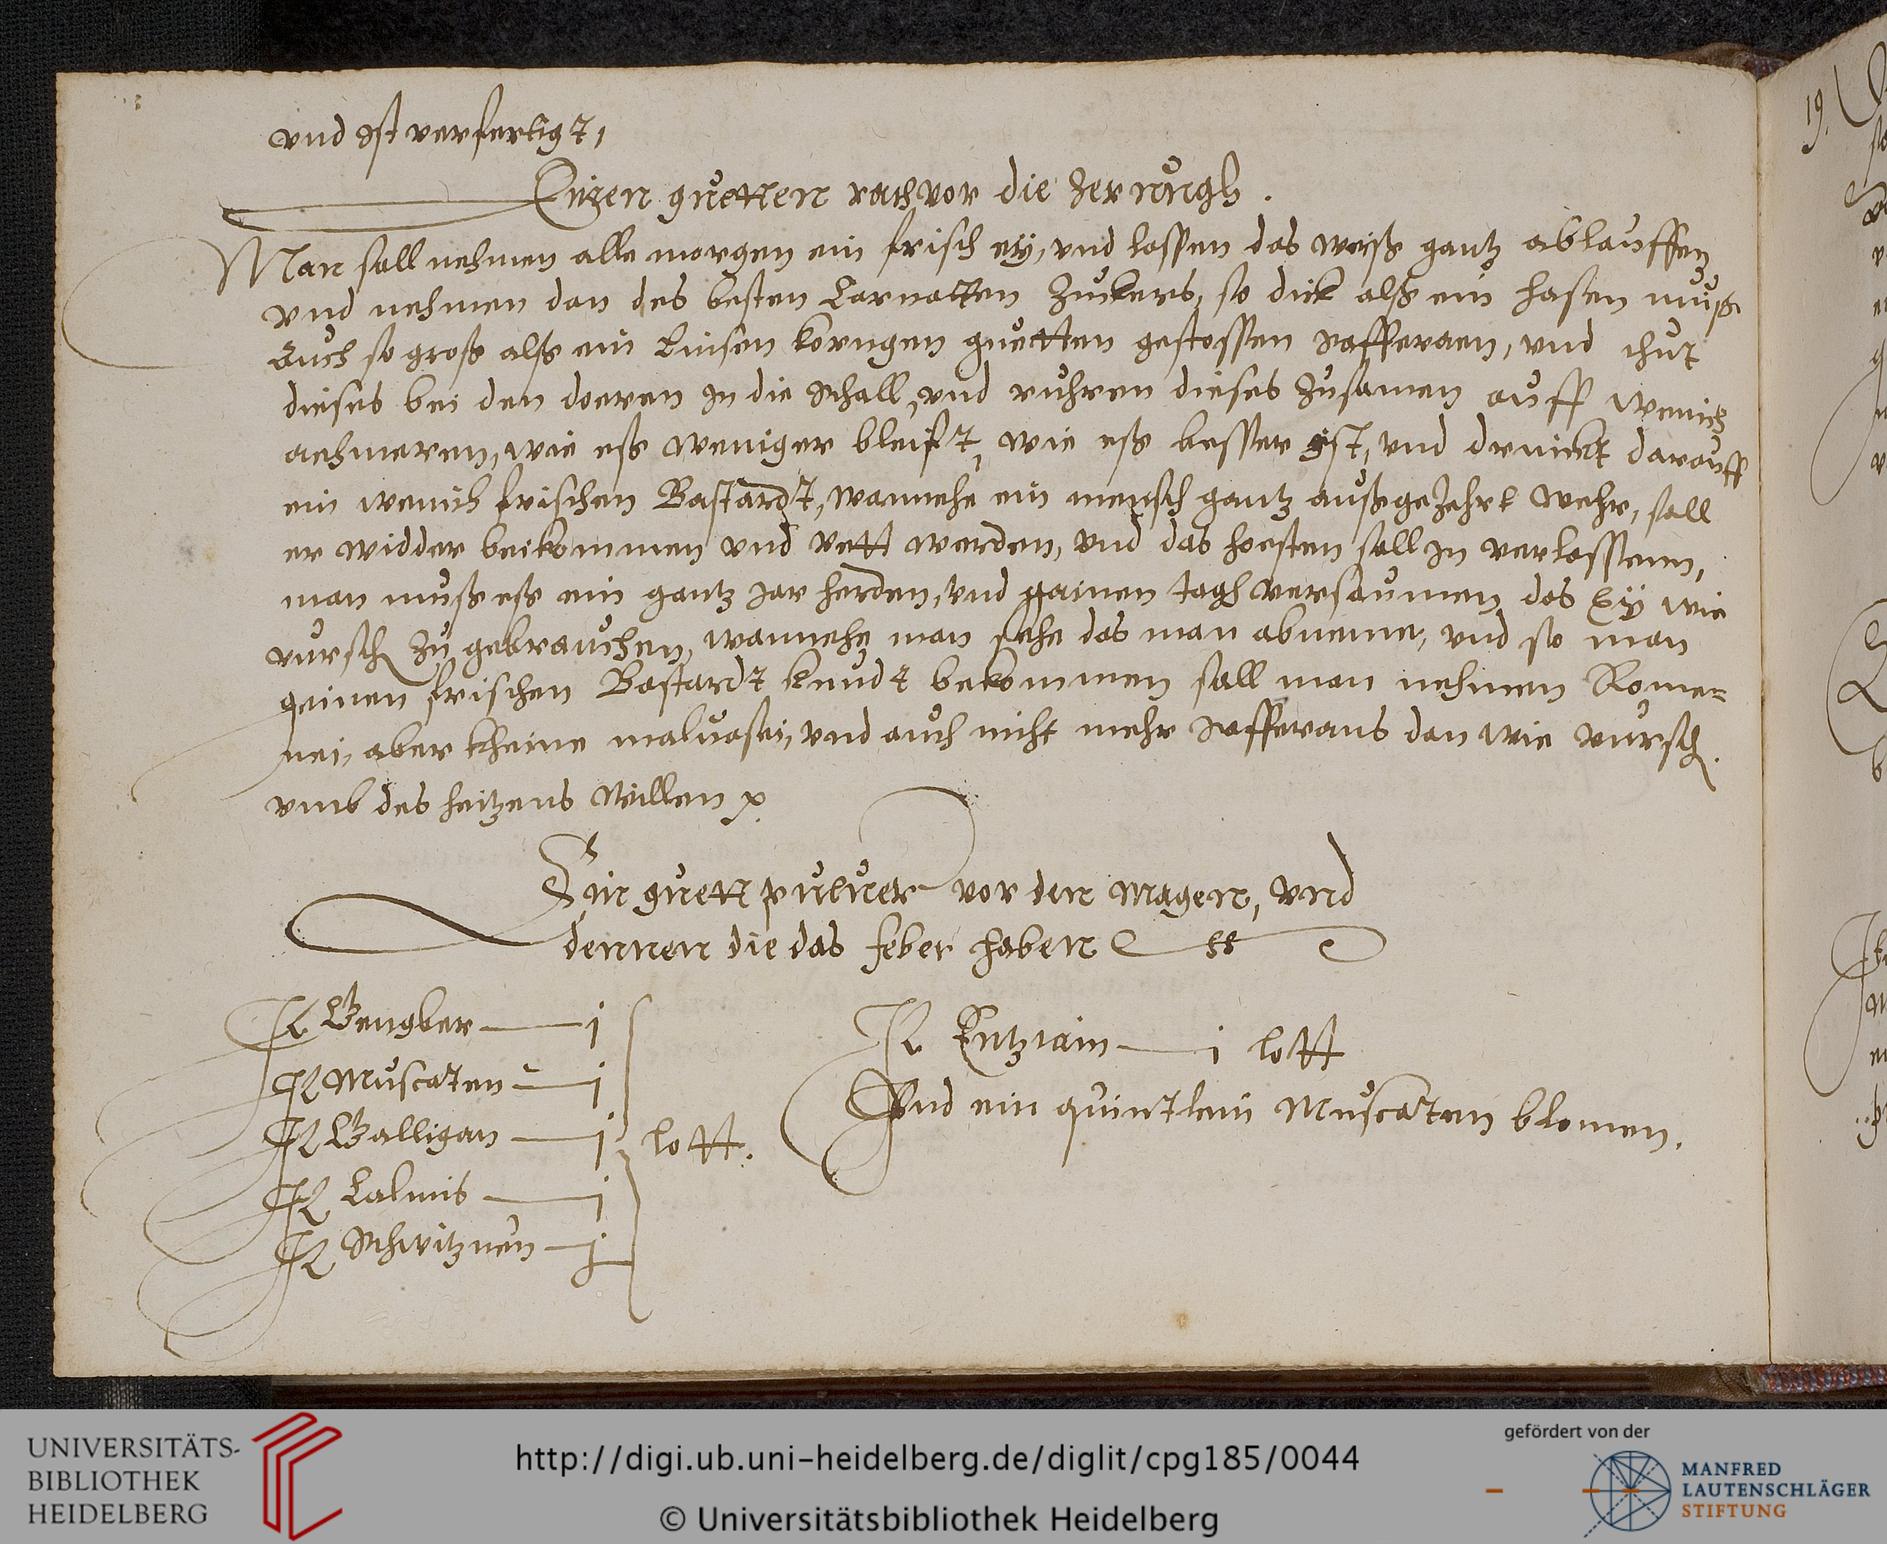 vnd ist verfertigt,
Einen guetten rath vor die Zerungh.
Man soll nehmen alle morgen ein frisch ey, vnd lossen das weiß gantz ablauffen
vnd nehmen dan des besten Carnatten Zuckers, so dick alß ein hasen nuß
Auch so groß alß ein Linsen korngen guetten gestossen safferaen, vnd thut
dieses bei den doeren in die schall, vnd ruhren dieses Zusamen auff wenich
aehmeren, wie eß weniger bleifft, wie eß besser ist, vnd drinckt darauff
ein wenich frischen Bastardt, wannehe ein mensch gantz außgezehrt wehr, soll
er widder beikommen vnd vett werden, vnd das hoesten soll in verlossenn,
man muß eß ein gantz jar herden, vnd geinen tagh versaumen das Ey wie
vursch zu gebrauchen, wannehe man sehe das man abneme, vnd so man
geinen frischen Bastardt kundt bekommen soll man nehmen Rome=
nei, aber kheine maluasei, vnd auch nicht mehr safferans dan wie vursch.
vmb des heitzens willen
Ein guett puluer vor den Magen, vnd
dennen die das feber haben
R Gengber — i
R Muscaten — i
R Galligan — i
R Calmis — i
R Schwitznen — j
lott.
R Entziain — i lott
Vnd ein quintlein Muscaten blomen.
19.
UNIVERSITÄTS-
BIBLIOTHEK
HEIDELBERG
http://digi.ub.uni-heidelberg.de/diglit/cpg185/0044
© Universitätsbibliothek Heidelberg
gefördert von der
MANFRED
LAUTENSCHLÄGER
STIFTUNG